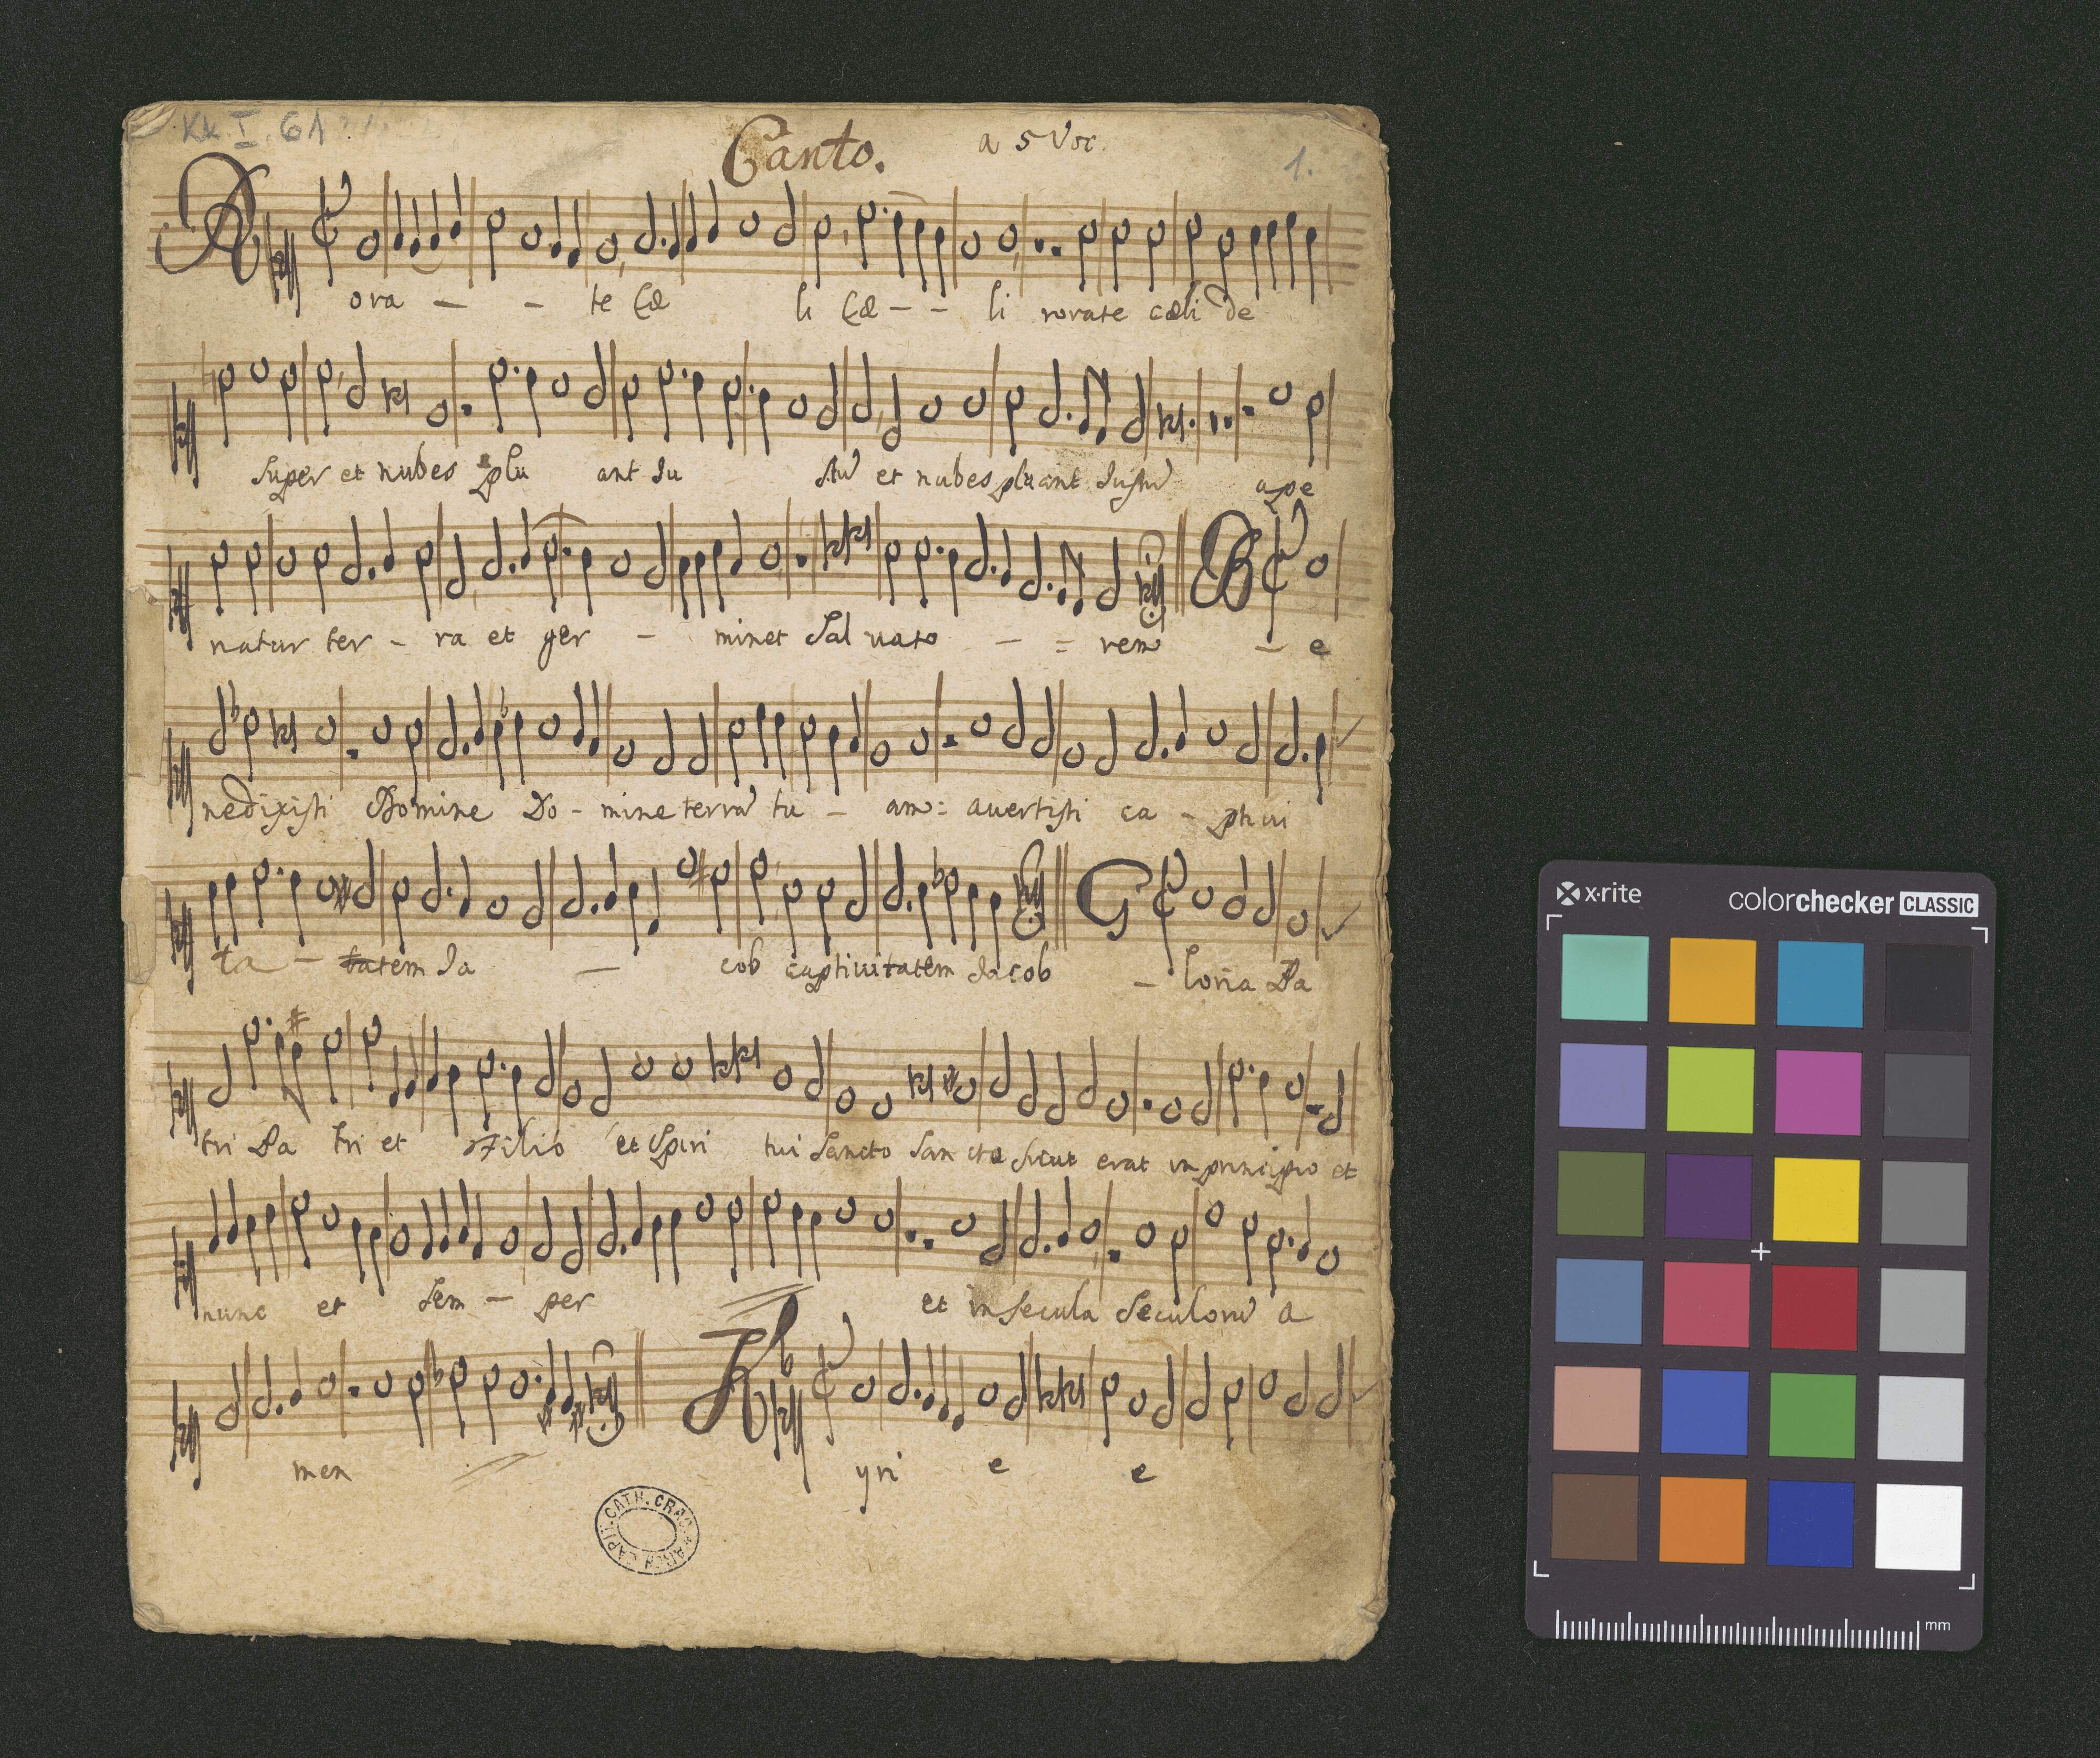 Kk. I. 61
Canto. a 5 Voc.
1.
R ora - - te Cæ li Cæ - - li rorate cæli de
super et nubes plu ant Ju stu et nubes pluant Justu ape
riatur ter - ra et ger - minet Sal uato - = rem B - e
nedixisti Domine Do - mine terra tu - am: auertisti ca - ptiui
ta - tatem Ja - cob captiuitatem Jacob G - loria Pa
tri Pa tri et Filio et Spiri tui Sancto Sancto Sicut erat in principio et
nunc et Sem - per et in Secula Seculoru a
men K yri e e
ARCH. CAPIT. CATH. CRAC.
x·rite colorchecker CLASSIC
mm